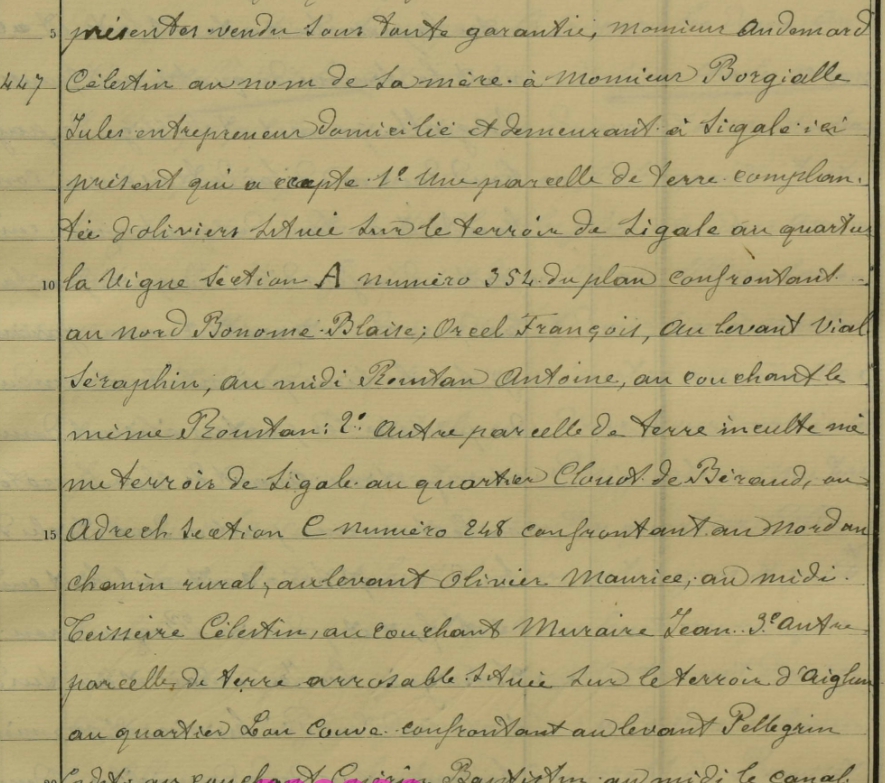 5 présentes vendu sous toute garantie, Monsieur Audemard
447 Célestin au nom de sa mère à Monsieur Borgialle
Jules entrepreneur domicilié et demeurant à Sigale ici
présent qui accepte 1° Une parcelle de terre complan-
tée d'oliviers située sur le terroir de Sigale au quartier
10 la Vigne Section A numéro 354 du plan confrontant
au nord Bonome Blaise; Orcel François, au levant Vial
Séraphin, au midi Roustan Antoine, au couchant le
même Roustan: 2° Autre parcelle de terre inculte mê
me terroir de Sigale au quartier Clouot de Béraud, ou
15 Adrech Section C numéro 248 confrontant au Nord un
chemin rural, au levant Olivier Maurice, au midi
Teisseire Célestin, au couchant Muraire Jean. 3° Autre
parcelle de terre arrosable située sur le terroir d'Aiglun
au quartier Lou Couve confrontant au levant Pellegrin
au couchant Guérin Baptistin au midi le canal